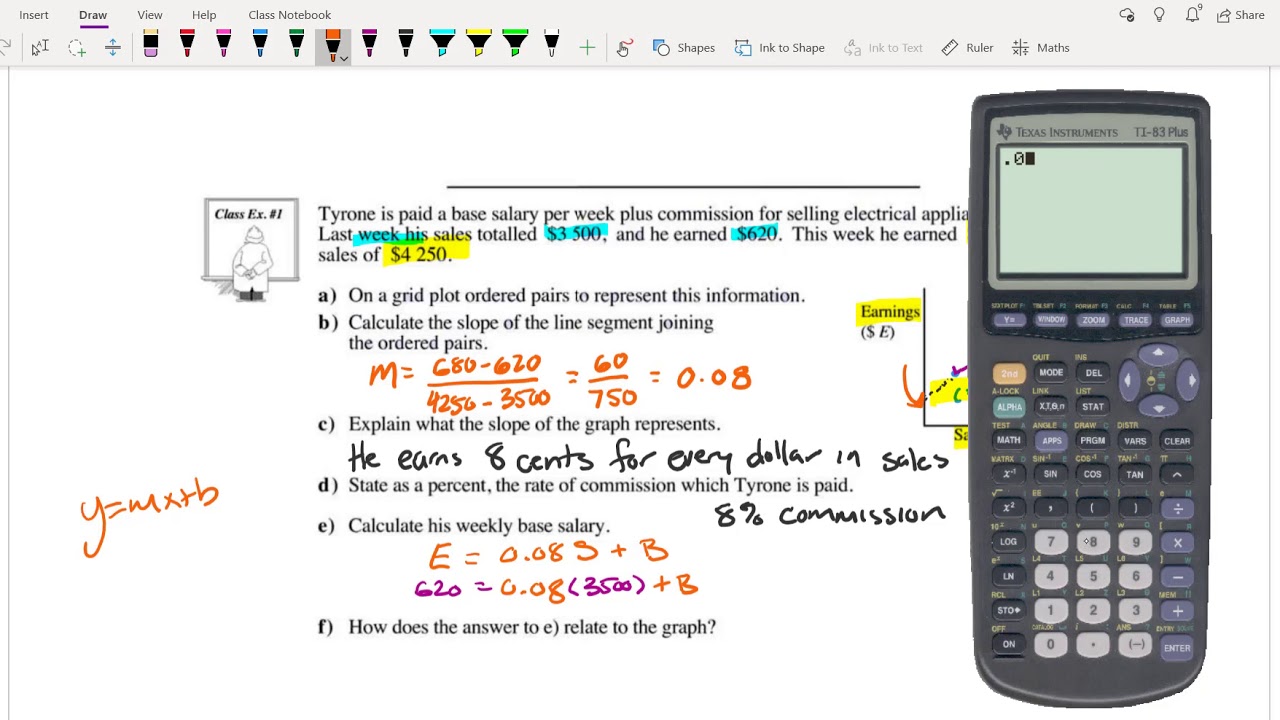 Insert Draw View Help Class Notebook Share
Shapes Ink to Shape Ink to Text Ruler Maths
Class Ex. #1
Tyrone is paid a base salary per week plus commission for selling electrical applia
Last week his sales totalled $3 500, and he earned $620. This week he earned
sales of $4 250.
a) On a grid plot ordered pairs to represent this information.
b) Calculate the slope of the line segment joining
the ordered pairs.
m = 680-620 / 4250-3500 = 60 / 750 = 0.08
c) Explain what the slope of the graph represents.
He earns 8 cents for every dollar in sales
d) State as a percent, the rate of commission which Tyrone is paid.
8% commission
y=mx+b
e) Calculate his weekly base salary.
E = 0.08S + B
620 = 0.08(3500) + B
f) How does the answer to e) relate to the graph?
Earnings
($ E)
Sa
TEXAS INSTRUMENTS TI-83 Plus
.0
STAT PLOT F1 TBLSET F2 FORMAT F3 CALC F4 TABLE F5
Y= WINDOW ZOOM TRACE GRAPH
QUIT INS
2nd MODE DEL
A-LOCK LINK LIST
ALPHA X,T,θ,n STAT
TEST A ANGLE B DRAW C DISTR
MATH APPS PRGM VARS CLEAR
MATRX D SIN⁻¹ E COS⁻¹ F TAN⁻¹ G π H
x⁻¹ SIN COS TAN ^
x² , ( ) ÷
LOG 7 8 9 ×
LN 4 5 6 −
RCL
STO▸ 1 2 3 +
OFF CATALOG ANS ENTRY SOLVE
ON 0 . (−) ENTER